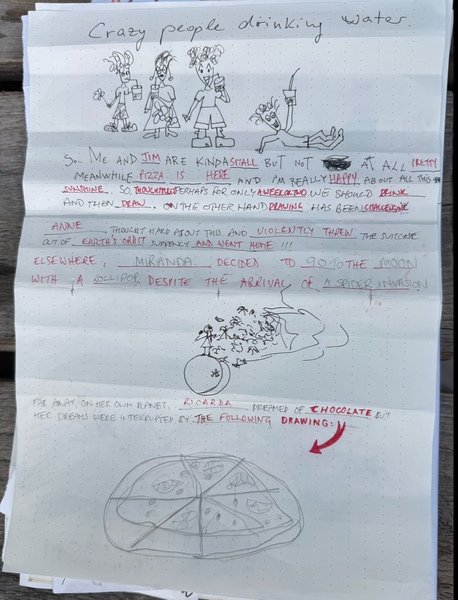 Crazy people drinking water.
So.. ME AND JIM ARE KINDA SMALL BUT NOT AT ALL PRETTY
MEANWHILE PIZZA IS HERE AND I'M REALLY HAPPY ABOUT ALL THIS
SUNSHINE. SO, PERHAPS FOR ONLY A WEEK OR TWO WE SHOULD DRINK
AND THEN DRAW. ON THE OTHER HAND DRAWING HAS BEEN
ANNE THOUGHT HARD ABOUT THIS AND VIOLENTLY THREW THE SUITCASE
OUT OF EARTH'S ORBIT SUDDENLY AND WENT HOME !!!
ELSEWHERE, MIRANDA DECIDED TO GO TO THE MOON
WITH A LOLLIPOP DESPITE THE ARRIVAL OF A SPIDER INVASION
FAR AWAY, ON HER OWN PLANET, RICARDA DREAMED OF CHOCOLATE BUT
HER DREAMS WERE INTERRUPTED BY THE FOLLOWING DRAWING: